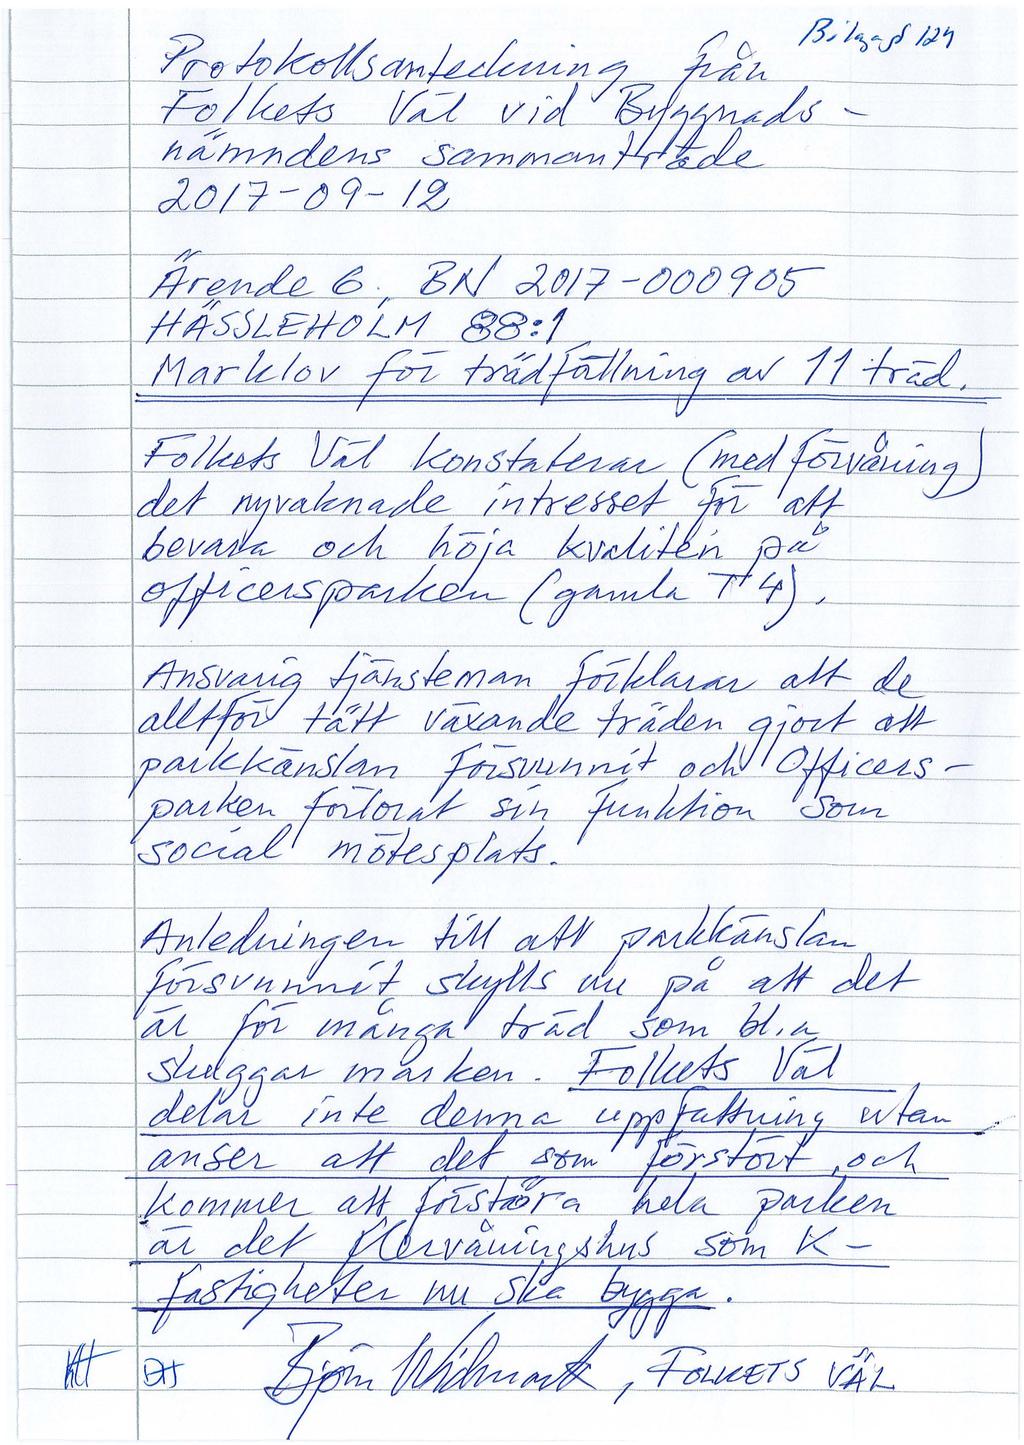 Bilaga § 124
Protokollsanteckning från
Folkets Väl vid Byggnads-
nämndens sammanträde
2017-09-12
Ärende 6, BN 2017-000905
HÄSSLEHOLM 88:1
Marklov för trädfällning av 11 träd.
Folkets Väl konstaterar (med förvåning)
det nyvaknade intresset för att
bevara och höja kvalitén på
officersparken (gamla T4).
Ansvarig tjänsteman förklarar att de
alltför tätt växande träden gjort att
parkkänslan försvunnit och Officers-
parken förlorat sin funktion som
social mötesplats.
Anledningen till att parkkänslan
försvunnit skylls nu på att det
är för många träd som bl.a
skuggar marken. Folkets Väl
delar inte denna uppfattning utan
anser att det som förstört, och
kommer att förstöra hela parken
är det flervåningshus som K-
fastigheter nu ska bygga.
Björn Widmark, FOLKETS VÄL